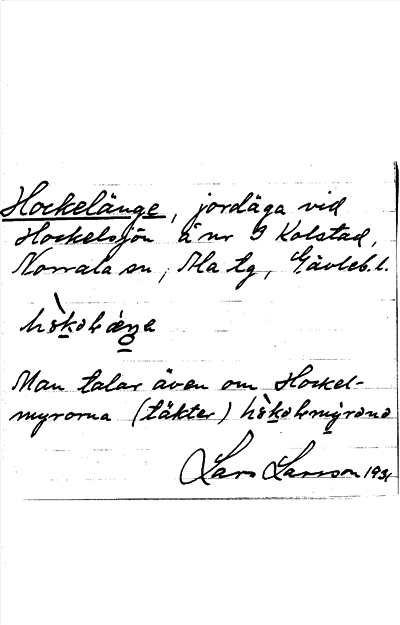 Hockelänge, jordäga vid
Hockelsjön å nr 9 Kolstad,
Norrala sn, Ala tg, Gävleb. l.
Man talar även om Hockel-
myrorna (täkter)
Lars Larsson 1931